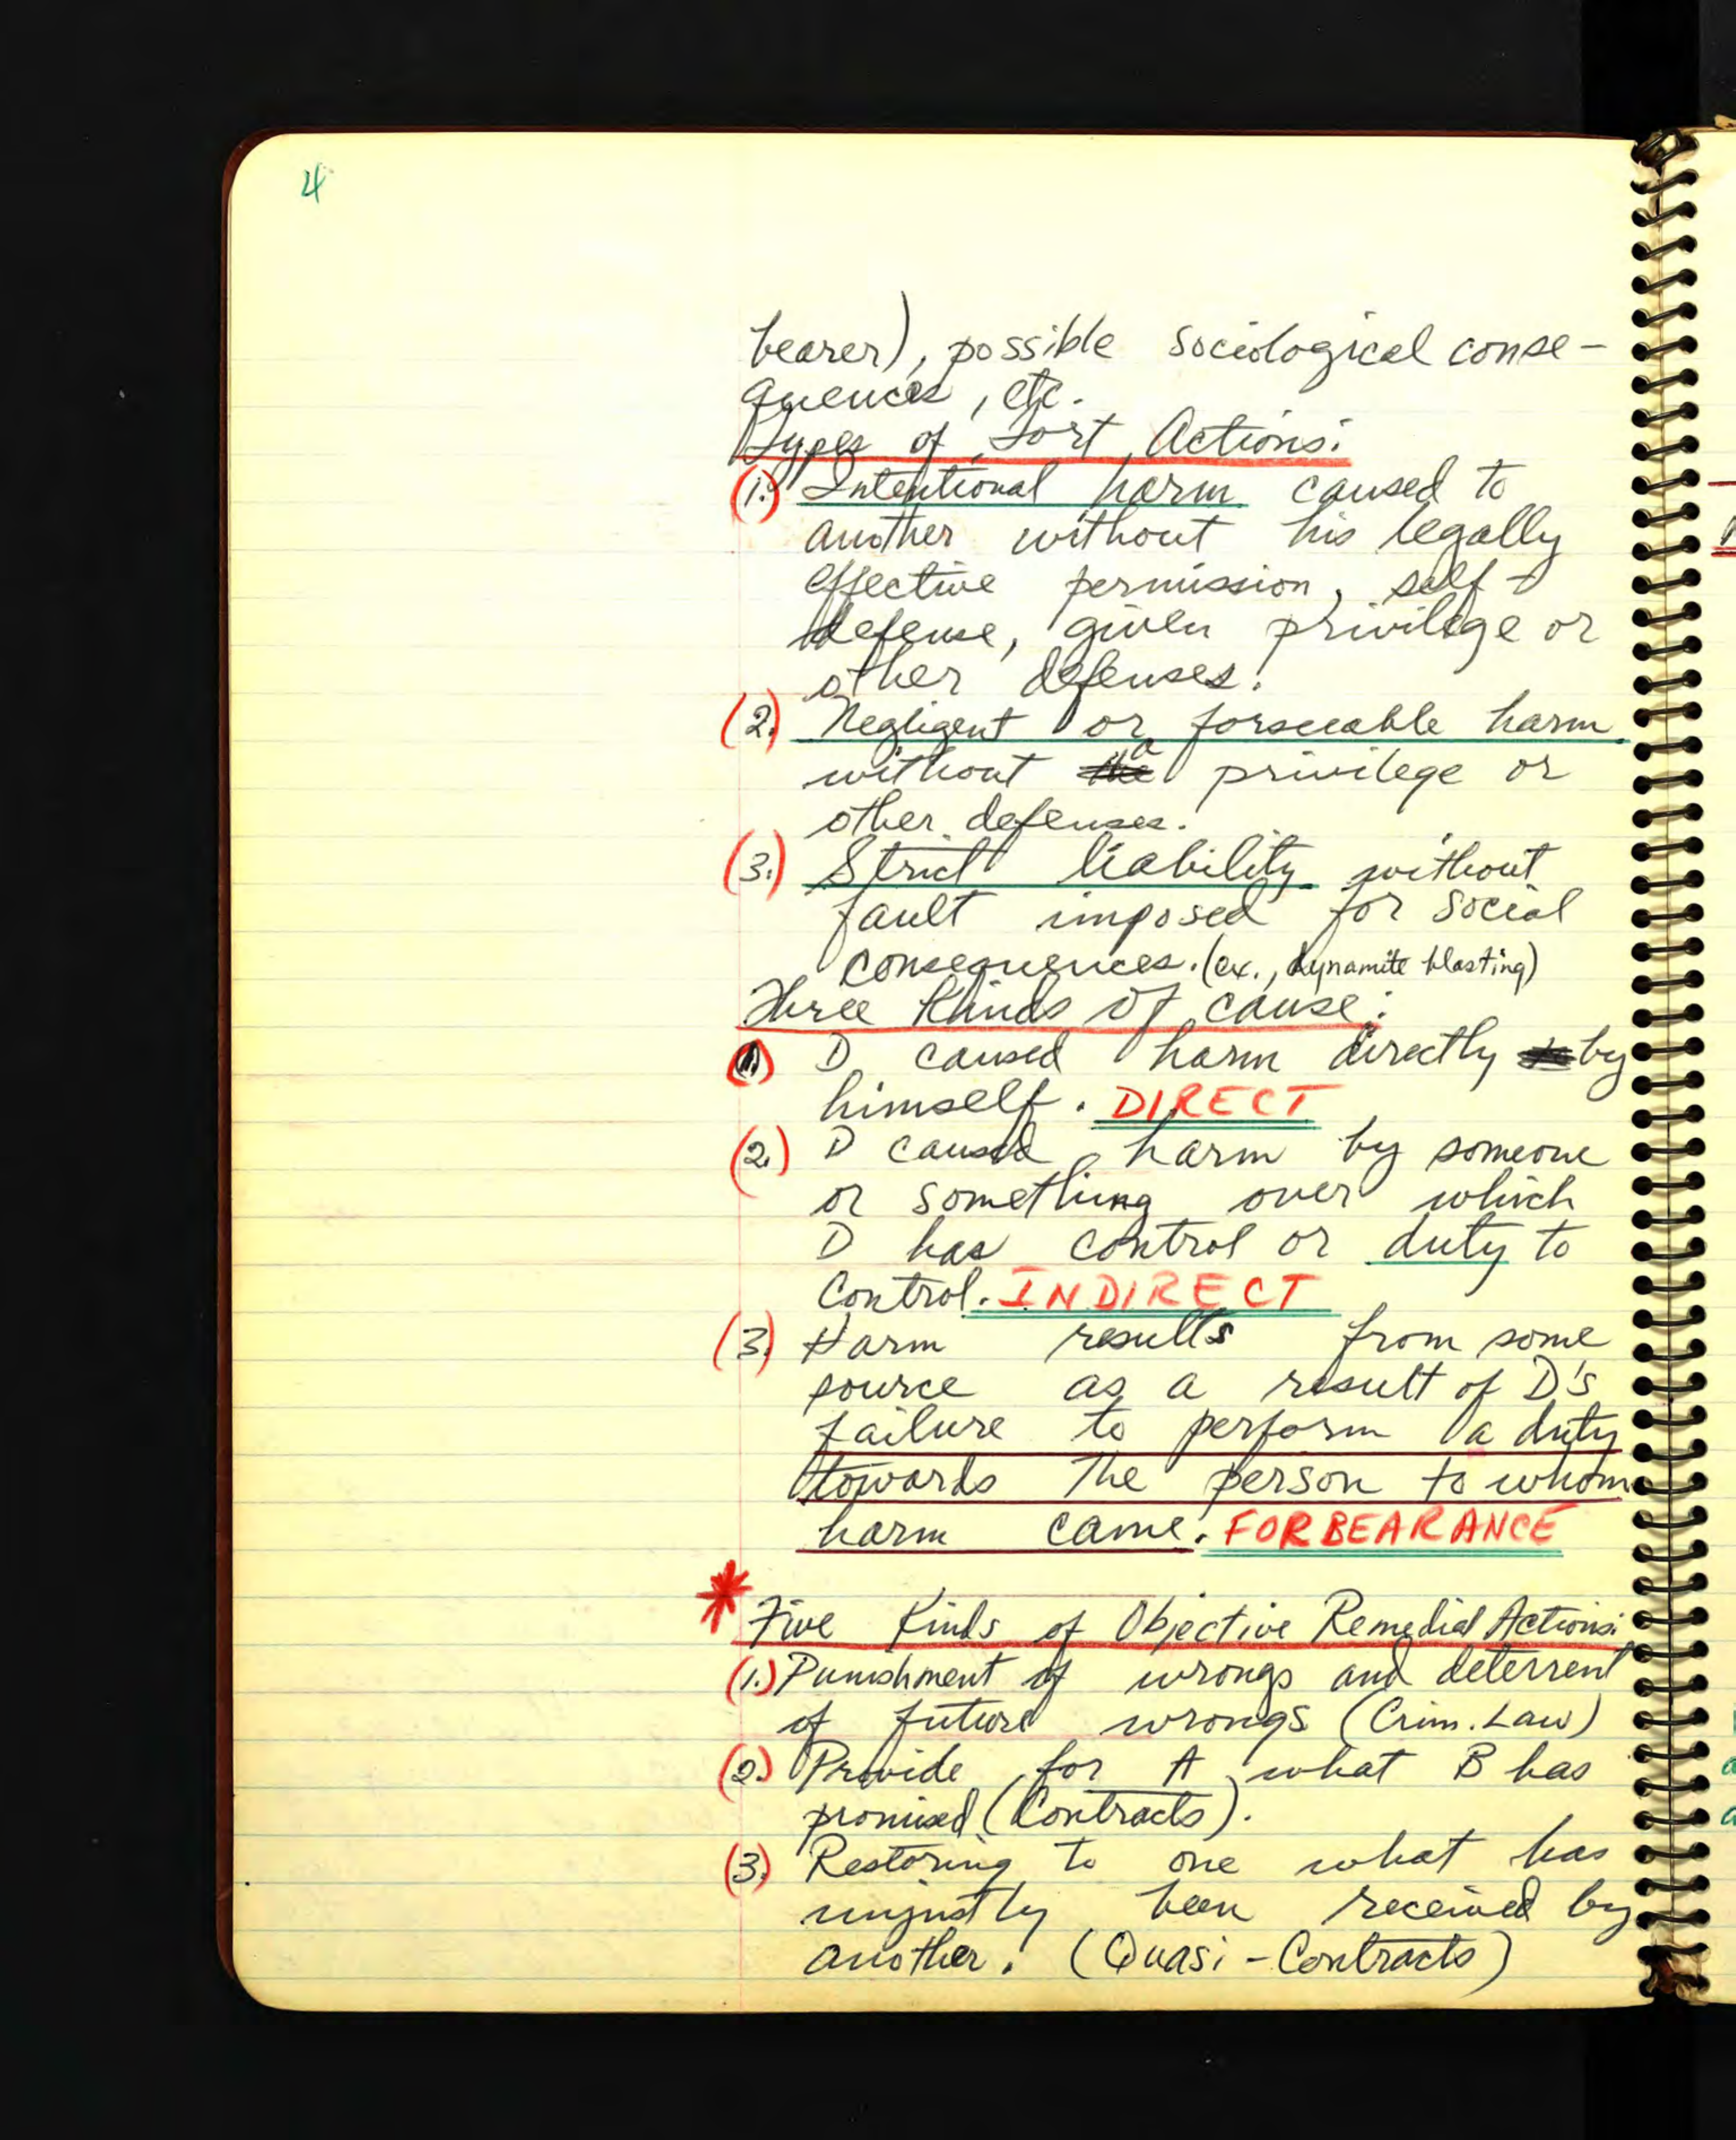 4
bearer), possible sociological conse-
quences, etc.
Types of Tort Actions:
(1.) Intentional harm caused to
another without his legally
effective permission, self-
defense, given privilege or
other defenses.
(2.) Negligent or forseeable harm
without a privilege or
other defenses.
(3.) Strict liability without
fault imposed for social
consequences. (ex., dynamite blasting)
Three Kinds of cause:
(1.) D caused harm directly by
himself. DIRECT
(2.) D caused harm by someone
or something over which
D has control or duty to
control. INDIRECT
(3.) Harm results from some
source as a result of D's
failure to perform a duty
towards the person to whom
harm came. FORBEARANCE
* Five Kinds of Objective Remedial Actions:
(1.) Punishment of wrongs and deterrent
of future wrongs (Crim. Law)
(2.) Provide for A what B has
promised (Contracts).
(3.) Restoring to one what has
unjustly been received by
another. (Quasi-Contracts)